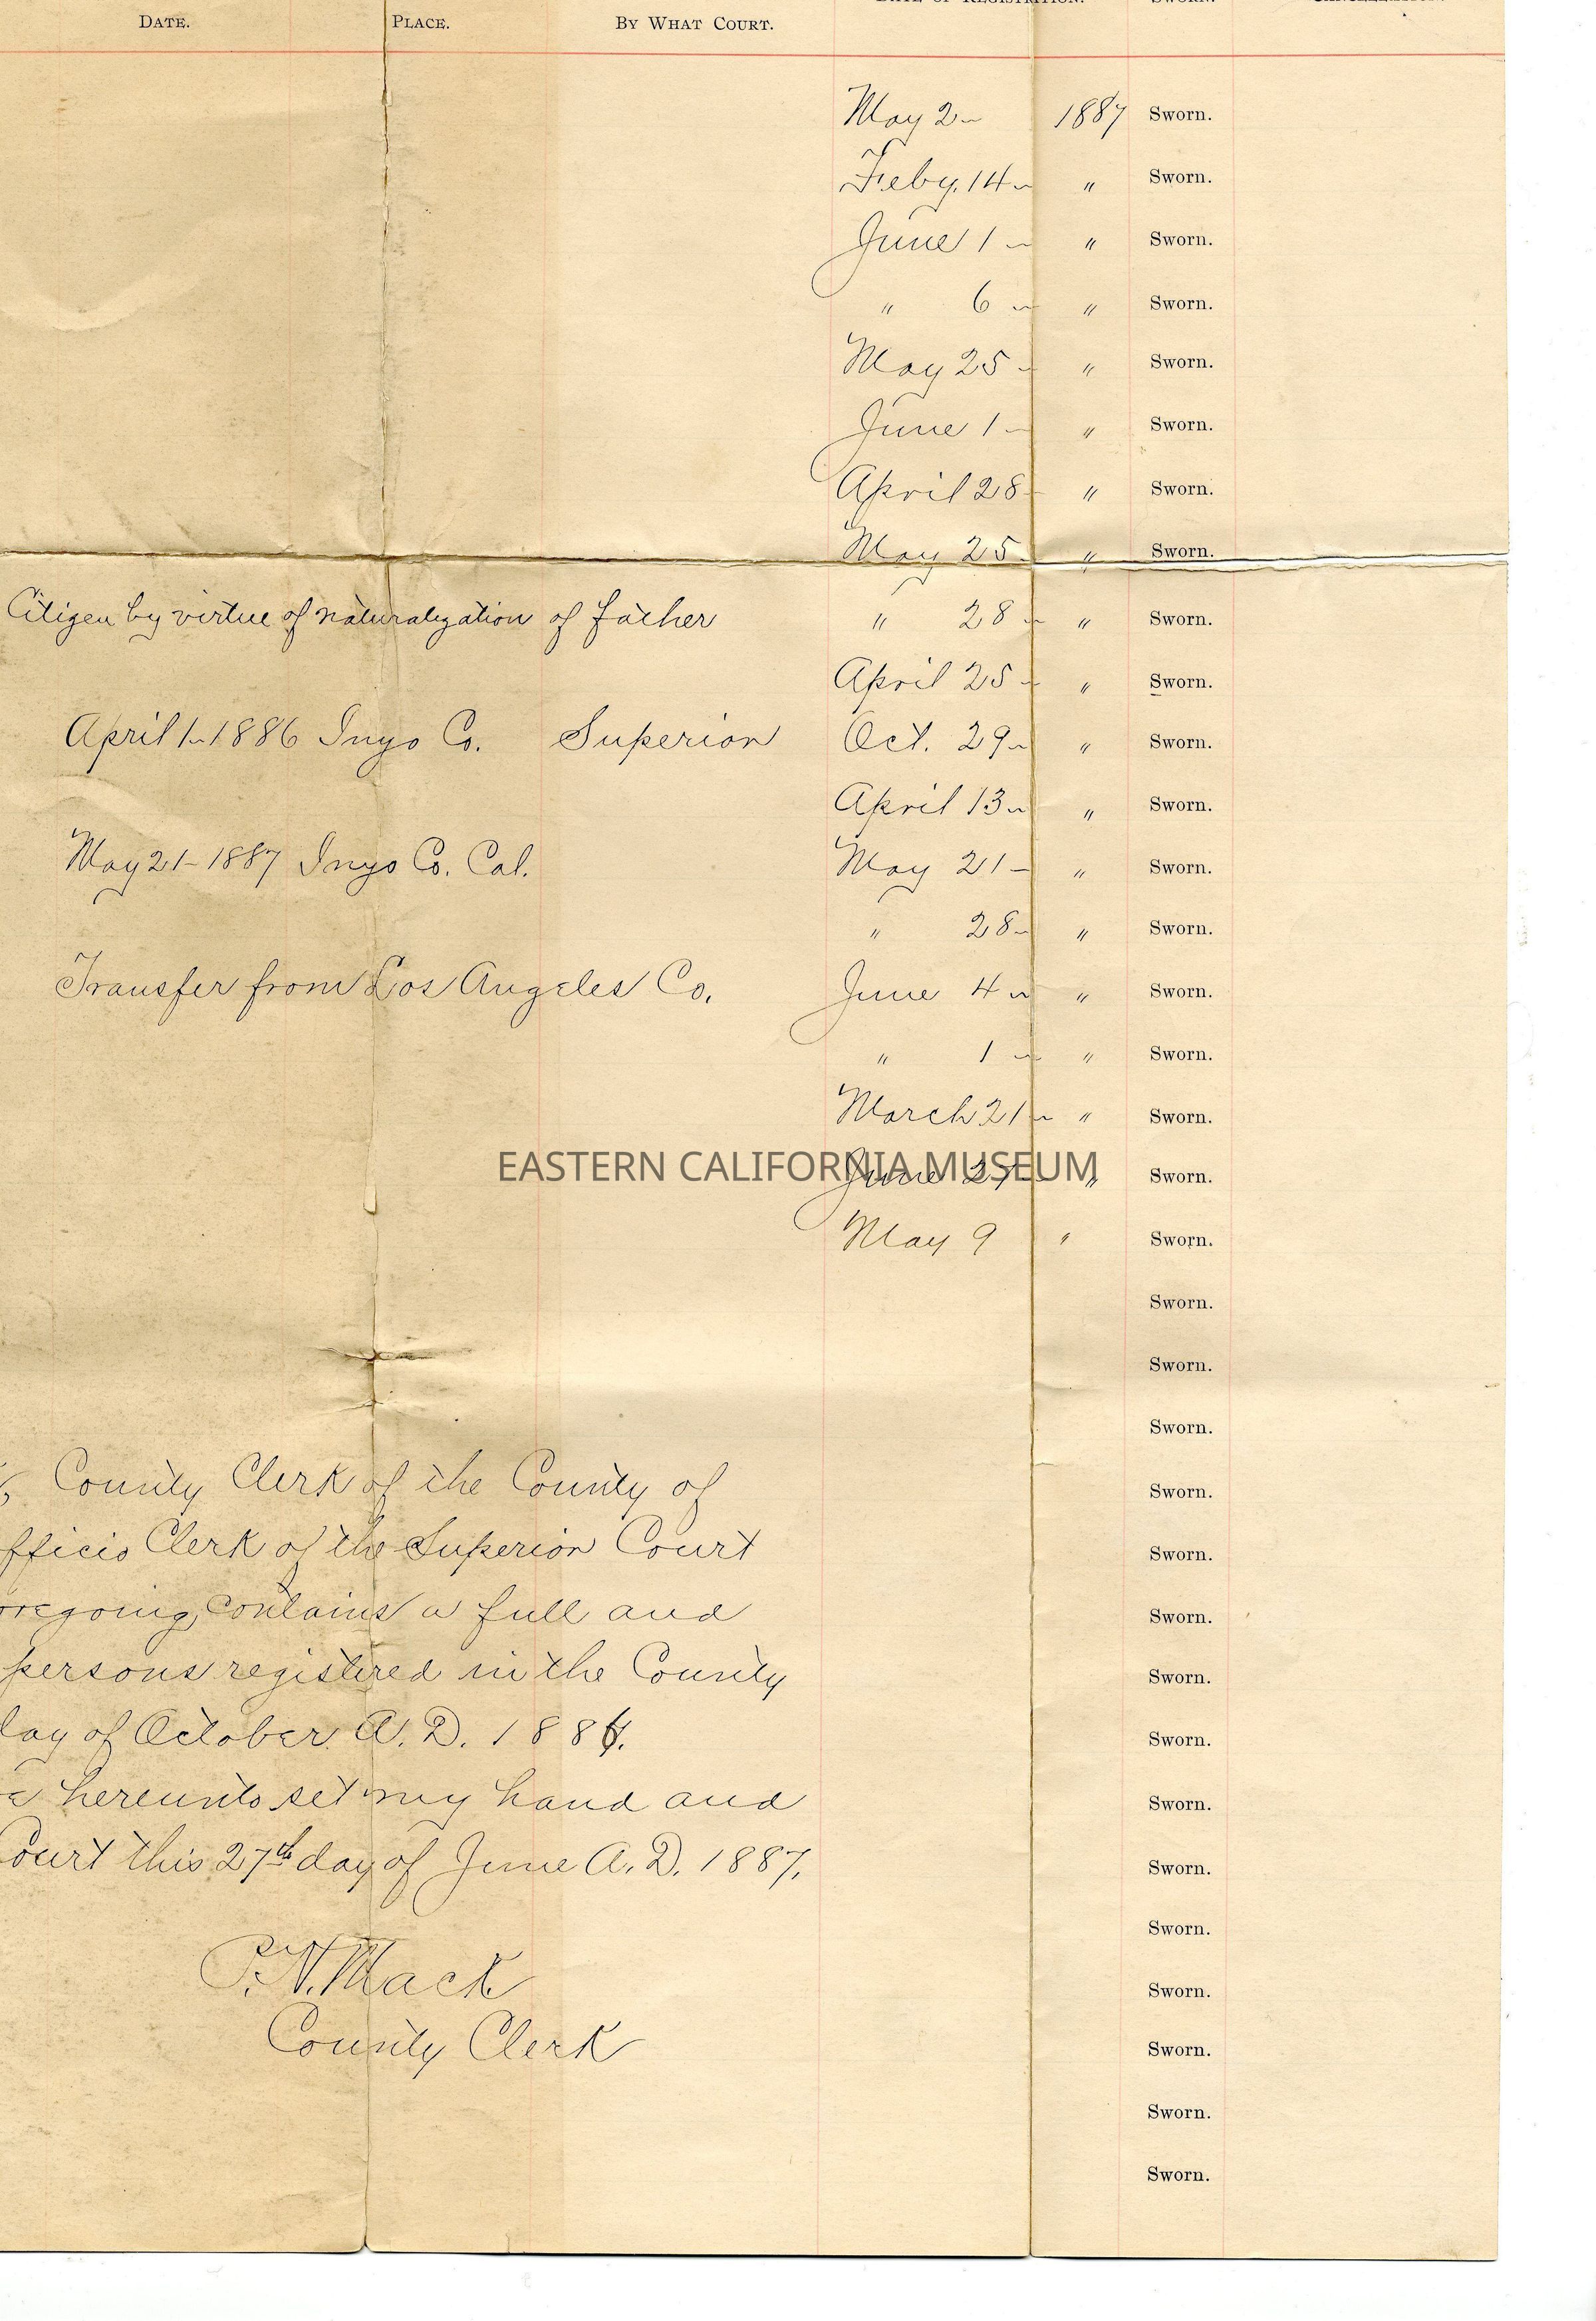 DATE. PLACE. BY WHAT COURT. DATE OF REGISTRATION. SWORN. CANCELLATION.
May 2 1887 Sworn.
Feby. 14 " " Sworn.
June 1 " Sworn.
" 6 " Sworn.
May 25 " Sworn.
June 1 " Sworn.
April 28 " Sworn.
May 25 " Sworn.
Citizen by virtue of naturalization of father " 28 " Sworn.
April 25 " Sworn.
April 1 - 1886 Inyo Co. Superior Oct. 29 " Sworn.
April 13 " Sworn.
May 21 - 1887 Inyo Co. Cal. May 21 - " Sworn.
" 28 " Sworn.
Transfer from Los Angeles Co. June 4 " Sworn.
" 1 " Sworn.
March 21 " Sworn.
EASTERN CALIFORNIA MUSEUM
June 27 " Sworn.
May 9 " Sworn.
Sworn.
Sworn.
Sworn.
County Clerk of the County of Sworn.
fficio Clerk of the Superior Court Sworn.
oregoing, contains a full and Sworn.
persons registered in the County Sworn.
day of October A.D. 188 Sworn.
hereunto set my hand and Sworn.
Court this 27th day of June A.D. 1887. Sworn.
Sworn.
P.N. Mack Sworn.
County Clerk Sworn.
Sworn.
Sworn.